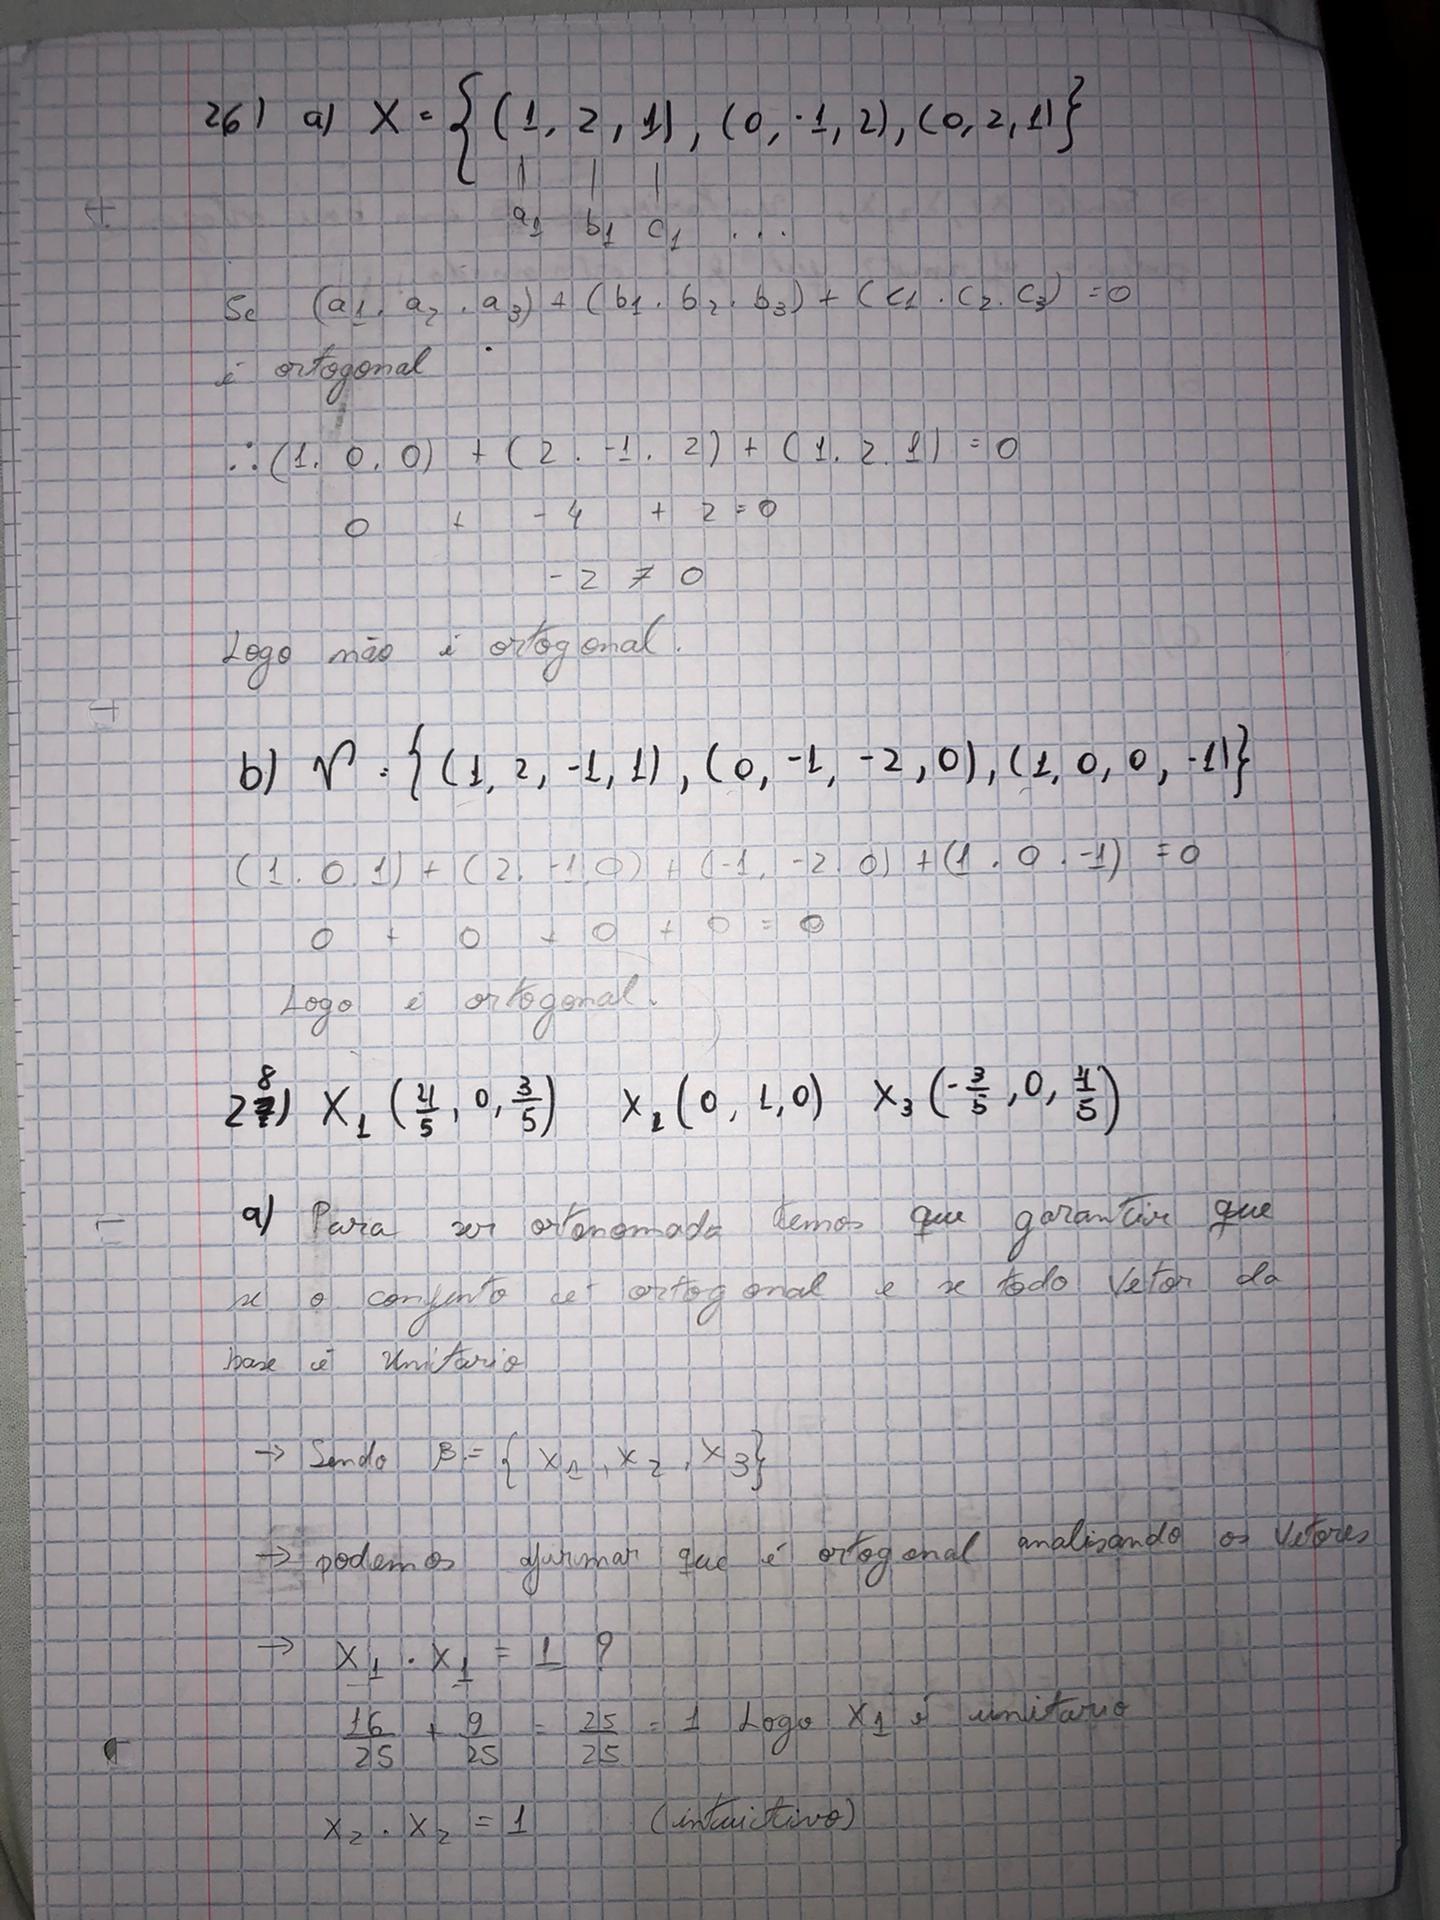 26) a) X = {(1, 2, 1), (0, -1, 2), (0, 2, 1)}
a1 b1 c1 ...
Se (a1 . a2 . a3) + (b1 . b2 . b3) + (c1 . c2 . c3) = 0
é ortogonal
∴ (1 . 0 . 0) + (2 . -1 . 2) + (1 . 2 . 1) = 0
0 + -4 + 2 = 0
-2 ≠ 0
Logo não é ortogonal.
b) V = {(1, 2, -1, 1), (0, -1, -2, 0), (1, 0, 0, -1)}
(1 . 0 . 1) + (2 . -1 . 0) + (-1 . -2 . 0) + (1 . 0 . -1) = 0
0 + 0 + 0 + 0 = 0
Logo é ortogonal.
28) X1 (4/5, 0, 3/5) X2 (0, 1, 0) X3 (-3/5, 0, 4/5)
a) Para ser ortonomada temos que garantir que
se o conjunto é ortogonal e se todo Vetor da
base é Unitario
→ Sendo β = {X1, X2, X3}
→ podemos afirmar que é ortogonal analisando os Vetores
→ X1 . X1 = 1 ?
16/25 + 9/25 = 25/25 = 1 Logo X1 é unitario
X2 . X2 = 1 (intuictivo)